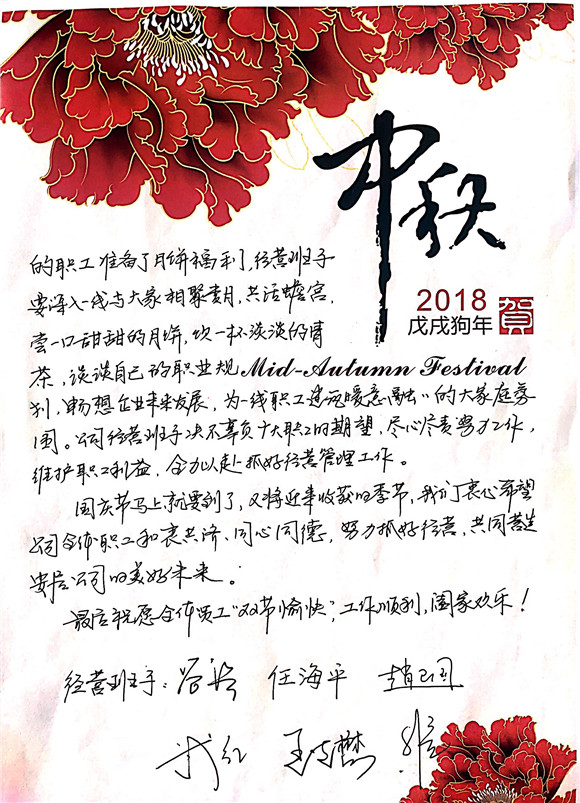 中秋
2018
戊戌狗年
賀
Mid-Autumn Festival
的职工准备了月饼福利,经营班子
要深入一线与大家相聚赏月,共话蟾宫,
尝一口甜甜的月饼,饮一杯淡淡的青
茶,谈谈自己的职业规
划,畅想企业未来发展,为一线职工营造暖意融融的大家庭氛
围。公司经营班子决不辜负广大职工的期望,尽心尽责努力工作,
维护职工利益,全力以赴抓好经营管理工作。
国庆节马上就要到了,又将迎来收获的季节,我们衷心希望
公司全体职工和衷共济、同心同德,努力抓好经营,共同营造
安居公司的美好未来。
最后祝愿全体员工"双节愉快",工作顺利,阖家欢乐!
经营班子: 任海平